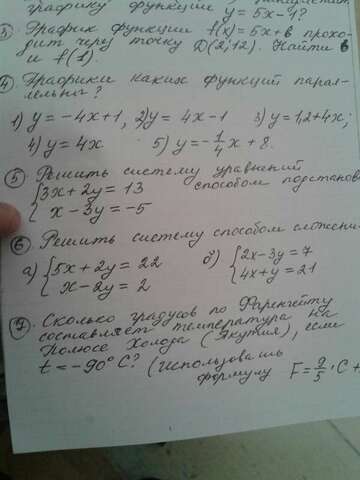 графику функции
y = 5x - 1?
③ График функции f(x) = 5x + в прохо-
дит через точку D(2; 12). Найти в
и f(1).
④ Графики каких функций парал-
лельны?
1) y = -4x + 1, 2) y = 4x - 1 3) y = 1,2 + 4x;
4) y = 4x 5) y = -1/4 x + 8.
⑤ Решить систему уравнений
способом подстанов
{3x + 2y = 13
x - 3y = -5
⑥ Решить систему способом сложени
а) {5x + 2y = 22
x - 2y = 2
б) {2x - 3y = 7
4x + y = 21
⑦ Сколько градусов по Фаренгейту
составляет температура на
Полюсе Холода (Якутия), если
t = -90° C? (использовать
формулу F = 9/5 · C +